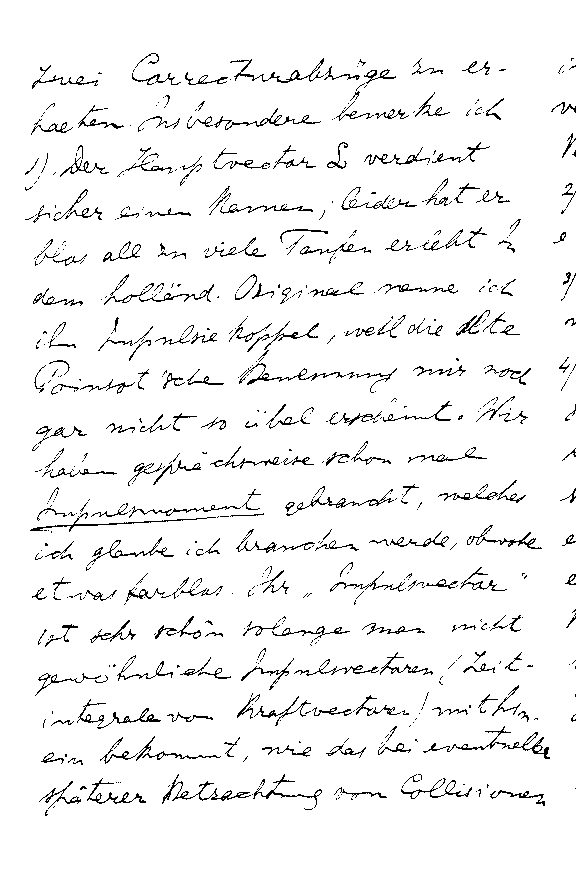 zwei Correcturabzüge zu er-
halten. Insbesondere bemerke ich
1). Der Hauptvector L verdient
sicher einen Namen; leider hat er
blos all zu viele Taufen erlebt In
dem holländ. Original nenne ich
ihn Impulsiekoppel, weil die alte
Poinsot'sche Benennung mir noch
gar nicht so übel erscheint. Wir
haben gesprächsweise schon mal
Impulsmoment gebraucht, welches
ich glaube ich brauchen werde, obwohl
etwas farblos. Ihr „Impulsvector"
ist sehr schön solange man nicht
gewöhnliche Impulsvectoren (Zeit-
integrale von Kraftvectoren) mithin-
ein bekommt, wie das bei eventueller
späterer Betrachtung von Collisionen